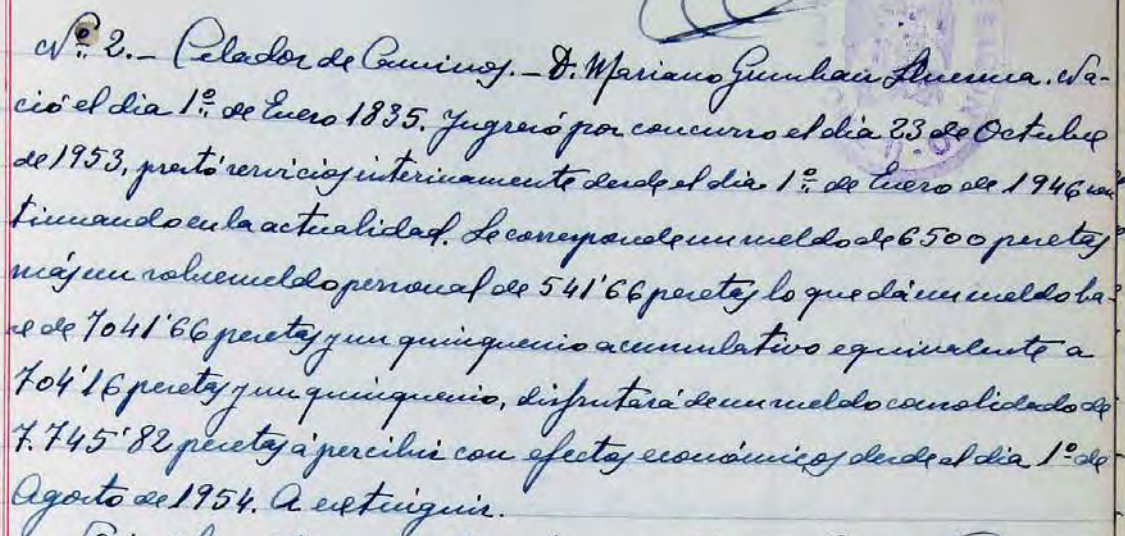 Nº 2.- Celador de Caminos.- D. Mariano Gumbau. Na-
ció el dia 1º de Enero 1835. Ingresó por concurso el dia 23 de Octubre
de 1953, prestó servicios interinamente desde el dia 1º de Enero de 1946 con
tinuando en la actualidad. Le corresponde un sueldo de 6500 pesetas
más un sobresueldo personal de 541'66 pesetas lo que dá un sueldo ba-
se de 7041'66 pesetas y un quinquenio acumulativo equivalente a
704'16 pesetas y un quinquenio, disfrutará de un sueldo consolidado de
7.745'82 pesetas á percibir con efectos económicos desde el dia 1º de
Agosto de 1954. A extinguir.